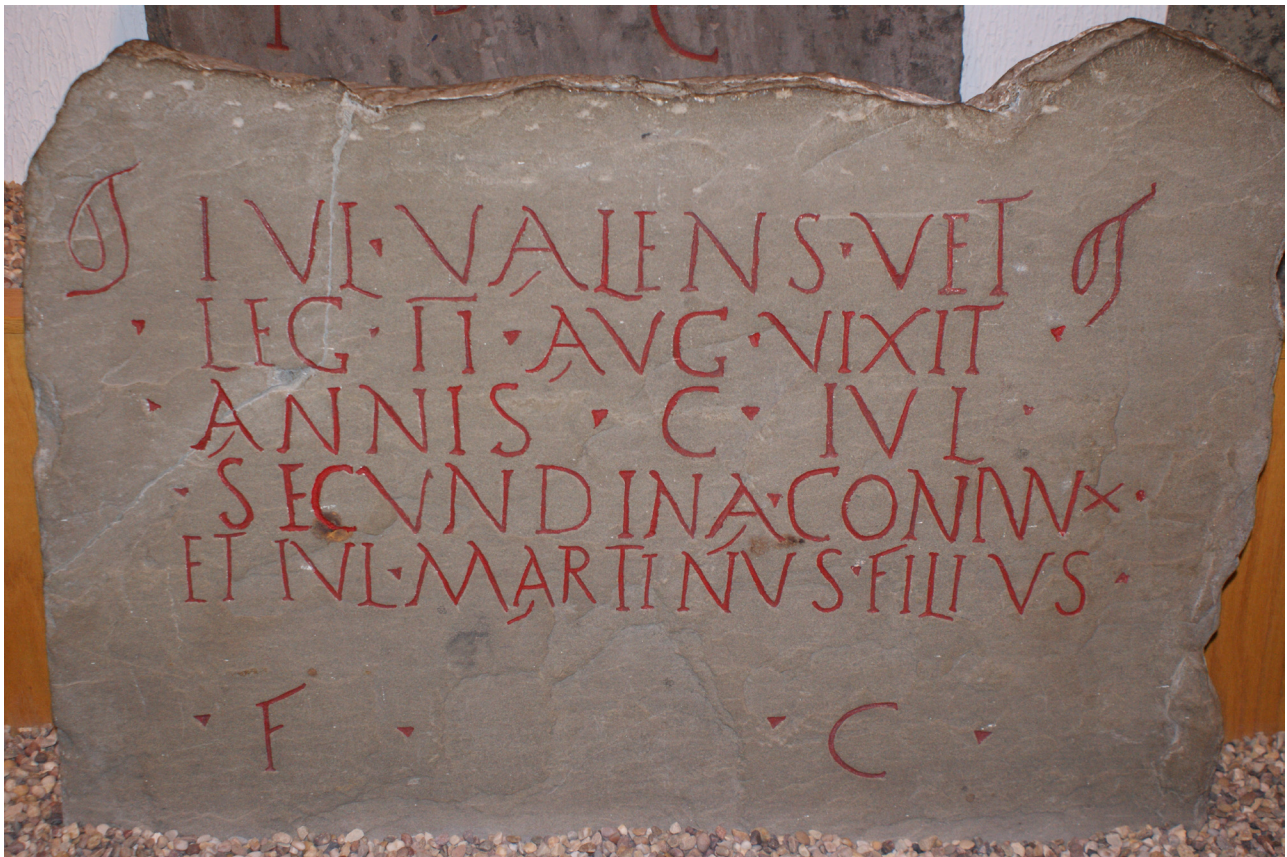 IVL · VALENS · VET
· LEG · II · AVG · VIXIT ·
· ANNIS · C · IVL ·
· SECVNDINA · CONIVNX ·
ET IVL · MARTINVS · FILIVS ·
· F · · C ·